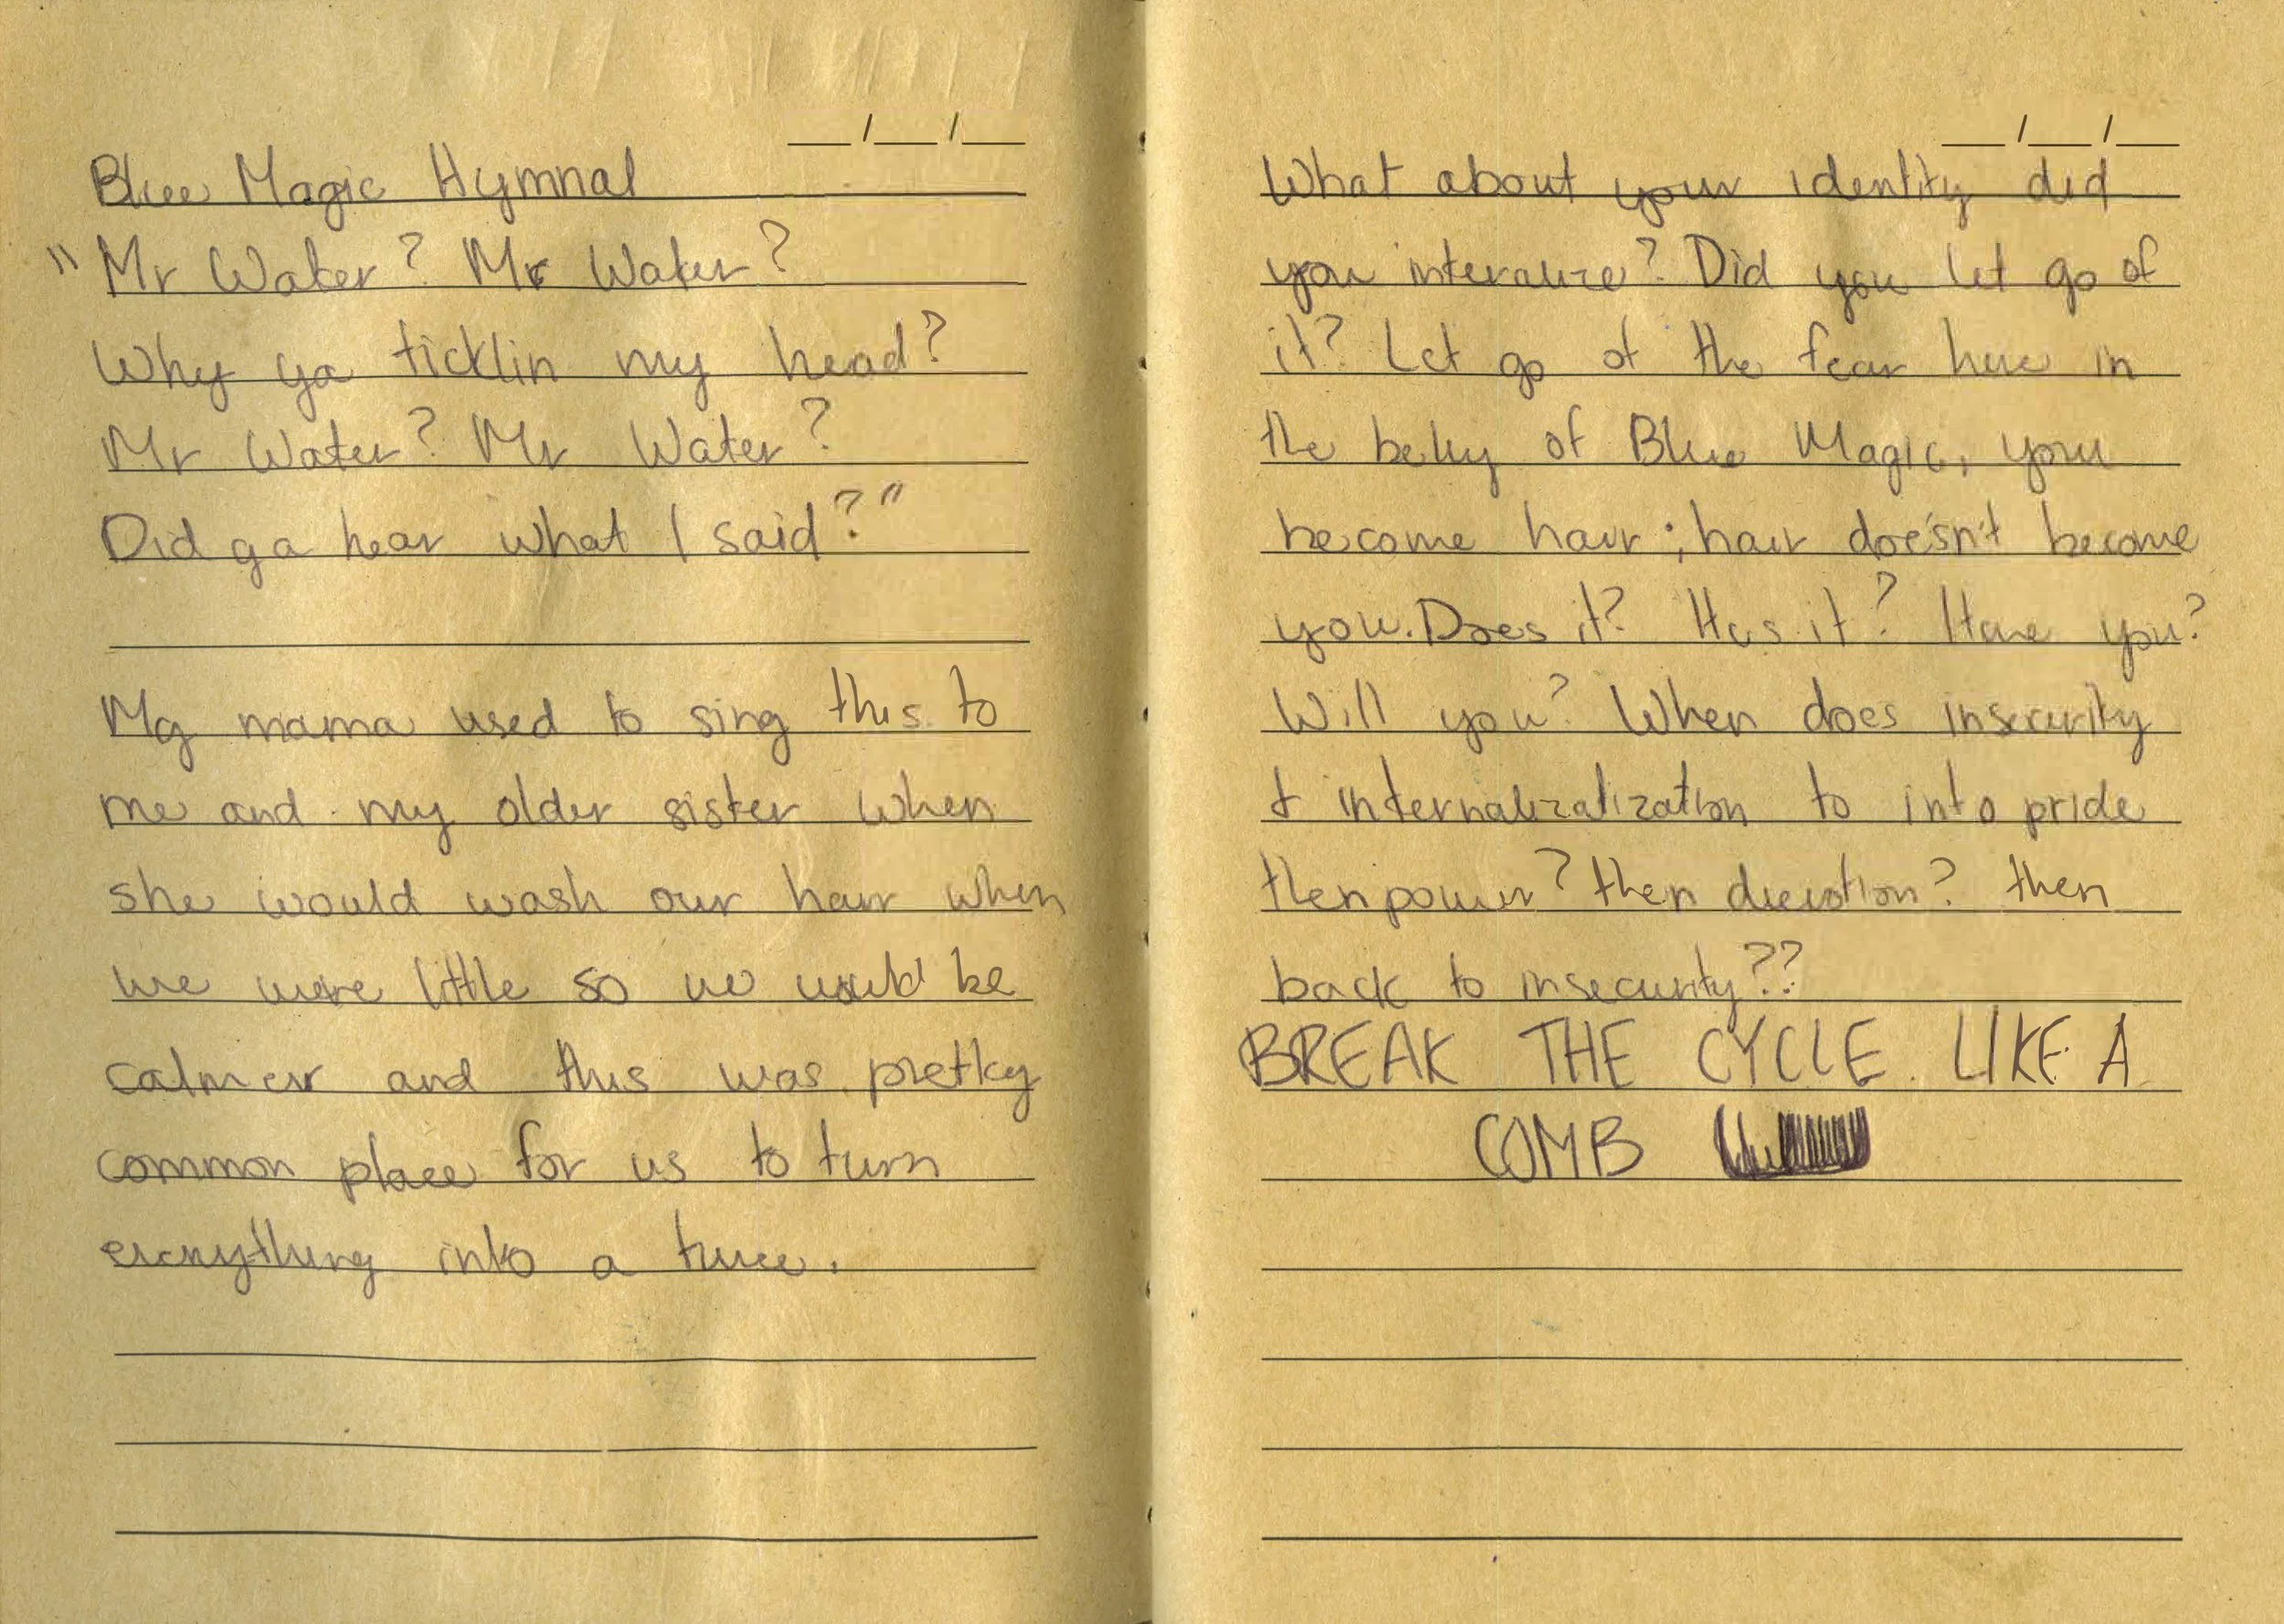 __/__/__
Blue Magic Hymnal
"Mr Water? Mr Water?
Why ya ticklin my head?
Mr Water? Mr Water?
Did ya hear what I said?"
My mama used to sing this to
me and my older sister when
she would wash our hair when
we were little so we would be
calmer and this was pretty
common place for us to turn
everything into a tune.
__/__/__
What about your identity did
you interalize? Did you let go of
it? Let go of the fear here in
the belly of Blue Magic, you
become hair; hair doesn't become
you. Does it? Has it? Have you?
Will you? When does insecurity
& internalizatization to into pride
then power? then devotion? then
back to insecurity??
BREAK THE CYCLE LIKE A
COMB